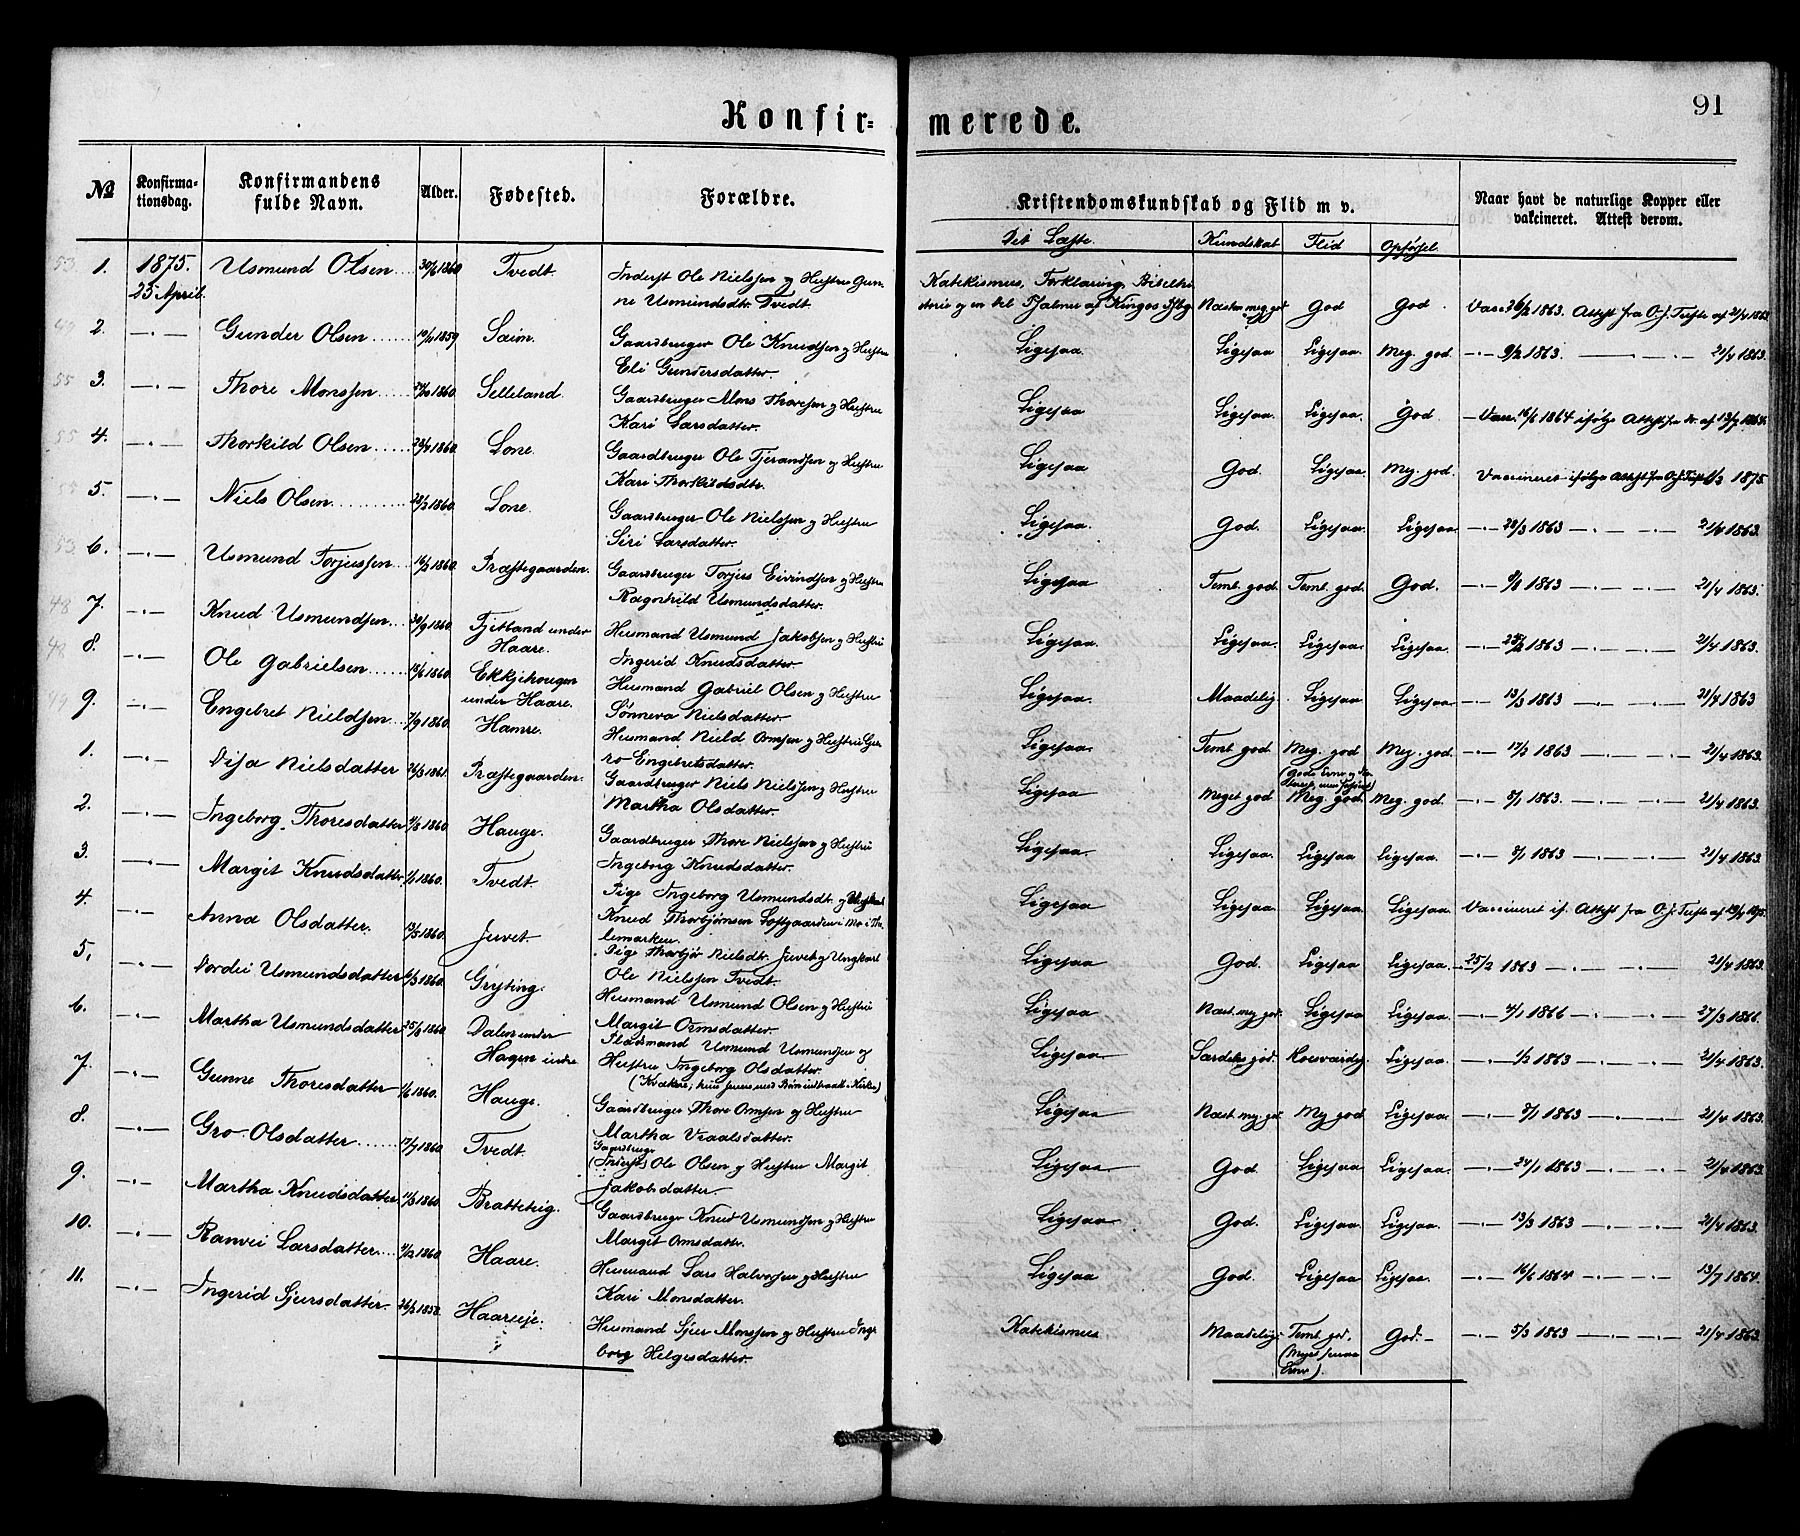 Konfir=
merede.
91
№
Konfirma-
tionsdag.
Konfirmandens
fulde Navn.
Alder.
Fødested.
Forældre.
Kristendomskundskab og Flid m v.
Naar havt de naturlige Kopper eller
vakcineret. Attest derom.
Det Læste. Kundskab Flid Opførsel
53 1. 1875. 25 April. Usmund Olsen 30/6 1860 Tvedt. Inderst Ole Nielssen og Hustru Gun-
ne Usmundsdtr. Tvedt.
Katekismus, Forklaring, Bibelhi-
storie og en Del Psalmer af Kingos Psbg. Næsten meg. god God God Vacc. 26/2 1863. Attest fra O. J. Tufte af 21/4 1863
2. —„— Gunder Olsen 1859 Saim. Gaardbruger Ole Knudsen og Hustru
Eli Gundersdatter.
Ligesaa Ligesaa Ligesaa. Meg. god. —„— 9/2 1863. —— 21/4 1863.
55 3. —„— Thore Monssen 1860. Selleland. Gaardbruger Mons Thoresen og Hustru
Kari Larsdatter.
Ligesaa Ligesaa. Ligesaa. God Vacc. 16/6 1864 ifølge Attest fra Dr. af 13/7 1864.
55 4. —„— Thorkild Olsen 23/4 1860. Lone. Gaardbruger Ole Tjerandsen og Hustru
Kari Thorkildsdtr.
Ligesaa God. Ligesaa Meg. god. Vaccineret ifølge Attest fra O. J. Tufte 1875
55 5. —„— Niels Olsen 1860. Lone. Gaardbruger Ole Nielssen og Hustru
Siri Larsdatter.
Ligesaa. God. Ligesaa. Ligesaa. —„— 28/3 1863 —„— 21/4 1863.
53 6. —„— Usmund Torjussen 16/2 1860. Præstegaarden. Gaardbruger Torjus Eivindsen og Hustru
Ragnhild Usmundsdatter.
Ligesaa Teml. god. Teml. god. God. —„— 8/1 1863 —„— 21/4 1863.
48 7. —„— Knud Usmundsen 30/9 1860. Fjetland under
Haare. Husmand Usmund Jakobsen og Hustru
Ingerid Knudsdatter.
Ligesaa. Ligesaa. Ligesaa. Ligesaa. —„— 25/2 1863 —„— 21/4 1863.
8. —„— Ole Gabrielsen 18/6 1860. Ekkjehougen
under Haare. Husmand Gabriel Olsen og Hustru
Sønneva Nielsdatter.
Ligesaa. Maadelig. Ligesaa Ligesaa. —„— 13/3 1863 —„— 21/4 1863
9. —„— Engebret Nieldsen 7/9 1860. Hamre. Husmand Nield Ormsen og Hustru Gu-
ro Engebretsdatter.
Ligesaa. Teml. god Meg. god Meg. god. —„— 17/2 1863 —„— 21/4 1863.
1. —„— Disa Nielsdatter 26/3 1861. Præstegaarden. Gaardbruger Niels Nielssen og Hustru
Martha Olsdatter.
Ligesaa Meget god. Meg. god. Meg. god. —„— 8/1 1863. —„— 21/4 1863.
2. Ingeborg Thoresdatter 1860. Hauge. Gaardbruger Thore Nielssen og Hustru
Ingeborg Knudsdatter.
Ligesaa. Ligesaa. Ligesaa Ligesaa. —„— 8/1 1863 —„— 21/4 1863.
3. —„— Margit Knudsdatter 1860. Tvedt. Pige Ingeborg Usmundsdt. og Ungkarl
Knud Thorbjørnsen Loftgaarden i Mo i The-
lemarken.
Ligesaa Ligesaa. Ligesaa. Ligesaa Vaccineret if. Attest fra O. J. Tufte af 1875.
4. —„— Anna Olsdatter. 13/5 1860. Juvet. Pige Thorbjør Nielsdtr. Juvet og Ungkarl
Ole Nielssen Tvedt.
Ligesaa God. Ligesaa Ligesaa. —25/2 1863 —„— 21/4 1863.
5. —„— Dordei Usmundsdatter 6/3 1860. Gryting. Husmand Usmund Olsen og Hustru
Margit Ormsdatter.
Ligesaa Næst. meg. god. Ligesaa Ligesaa —„— 4/1 1866 —„— 27/3 1866.
6. —„— Martha Usmundsdatter 25/6 1860 Dalen under
Hagen indre Pladsmand Usmund Usmundsen og
Hustru Ingeborg Olsdatter.
Ligesaa Særdeles god. Roesværdig. Ligesaa —„— 1/2 1863 —„— 21/4 1863.
7. —„— Gunne Thoresdatter 1/6 1860. Hauge. Gaardbruger Thore Ormsen og Hustru
Martha Vraalsdatter.
Ligesaa Næst. meg. god. Meg. god. Ligesaa. —„— 8/1 1863 —„— 21/4 1863.
8. —„— Gro Olsdatter 17/7 1860. Tvedt. Gaardbruger
(Inderst) Ole Olsen og Hustru Margit
Jakobsdatter.
Ligesaa God. Ligesaa Ligesaa. —„— 24/1 1863 —„— 21/4 1863.
9. —„— Martha Knudsdatter 1860. Bratteteig. Gaardbruger Knud Usmundsen og Hustru
Margit Ormsdatter.
Ligesaa God. Ligesaa. Ligesaa. —„— 13/3 1863 —„— 21/4 1863.
10. —„— Ranvei Larsdatter 1860. Haare. Husmand Lars Halvorsen og Hustru
Kari Monsdatter.
Ligesaa God. Ligesaa Ligesaa. —„— 16/6 1864 —„— 13/7 1864.
11. —„— Ingerid Sjursdatter 26/2 1858. Haareeje. Husmand Sjur Monssen og Hustru Inge-
borg Helgesdatter.
Katekismus Maadelig. Teml. god. God. —„— 5/3 1863 —„— 21/4 1863.